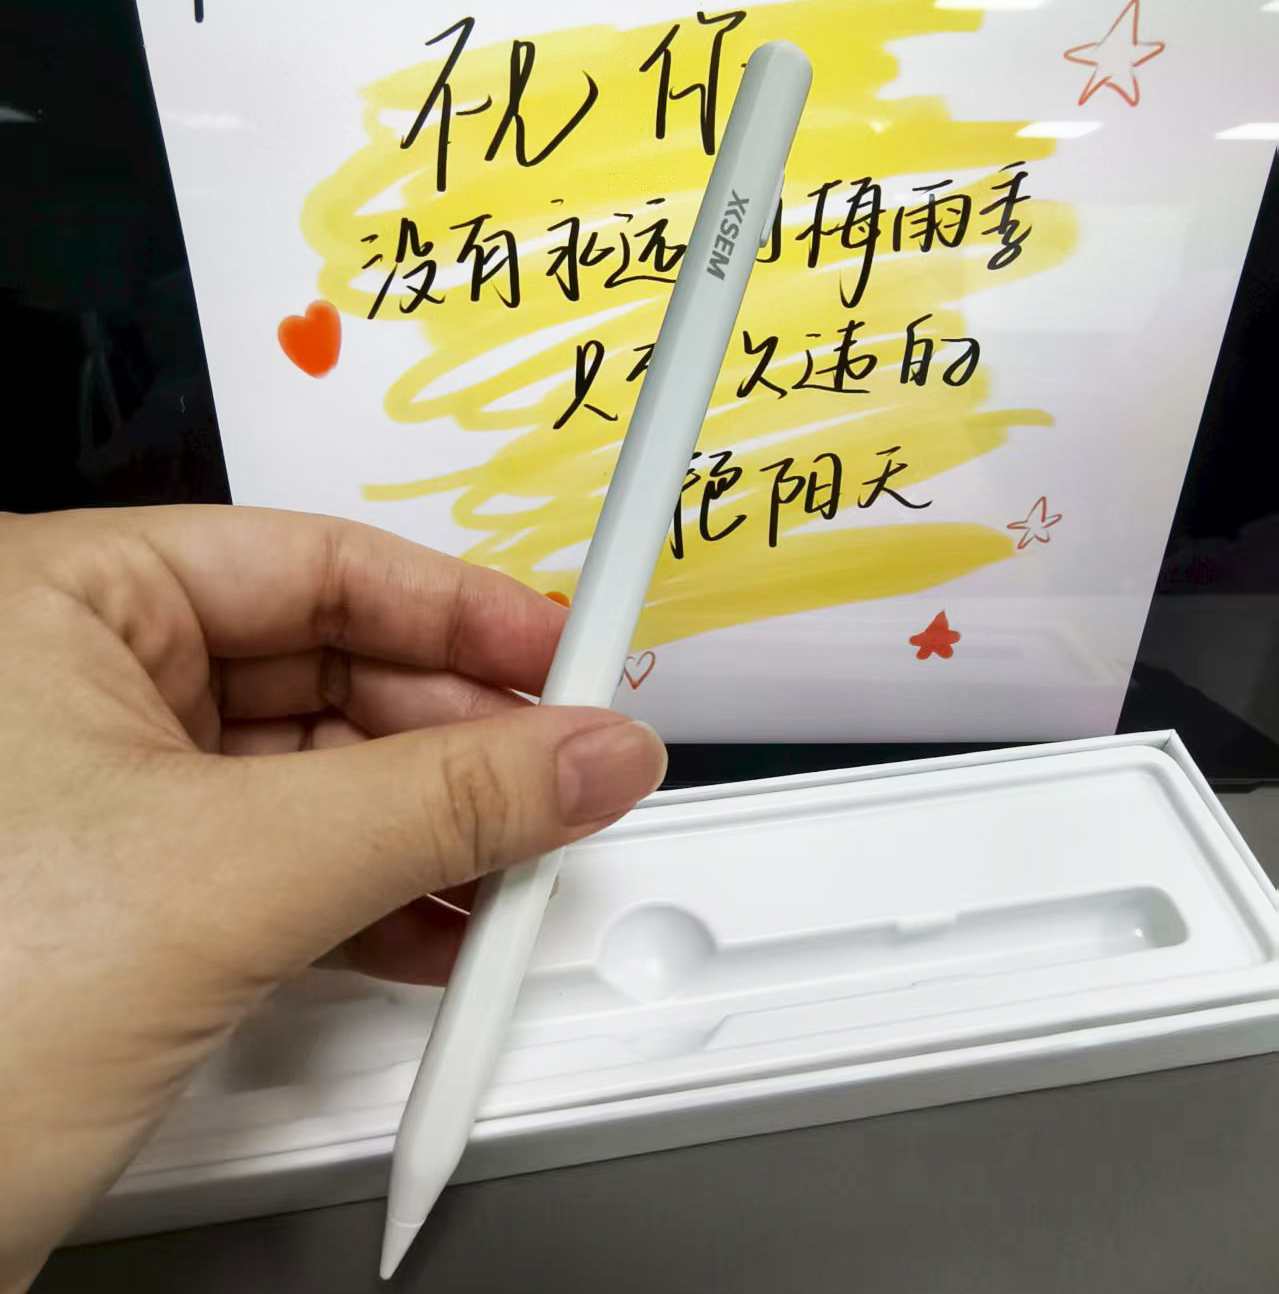 祝你
没有永远的梅雨季
只有久违的
艳阳天
XKSEM